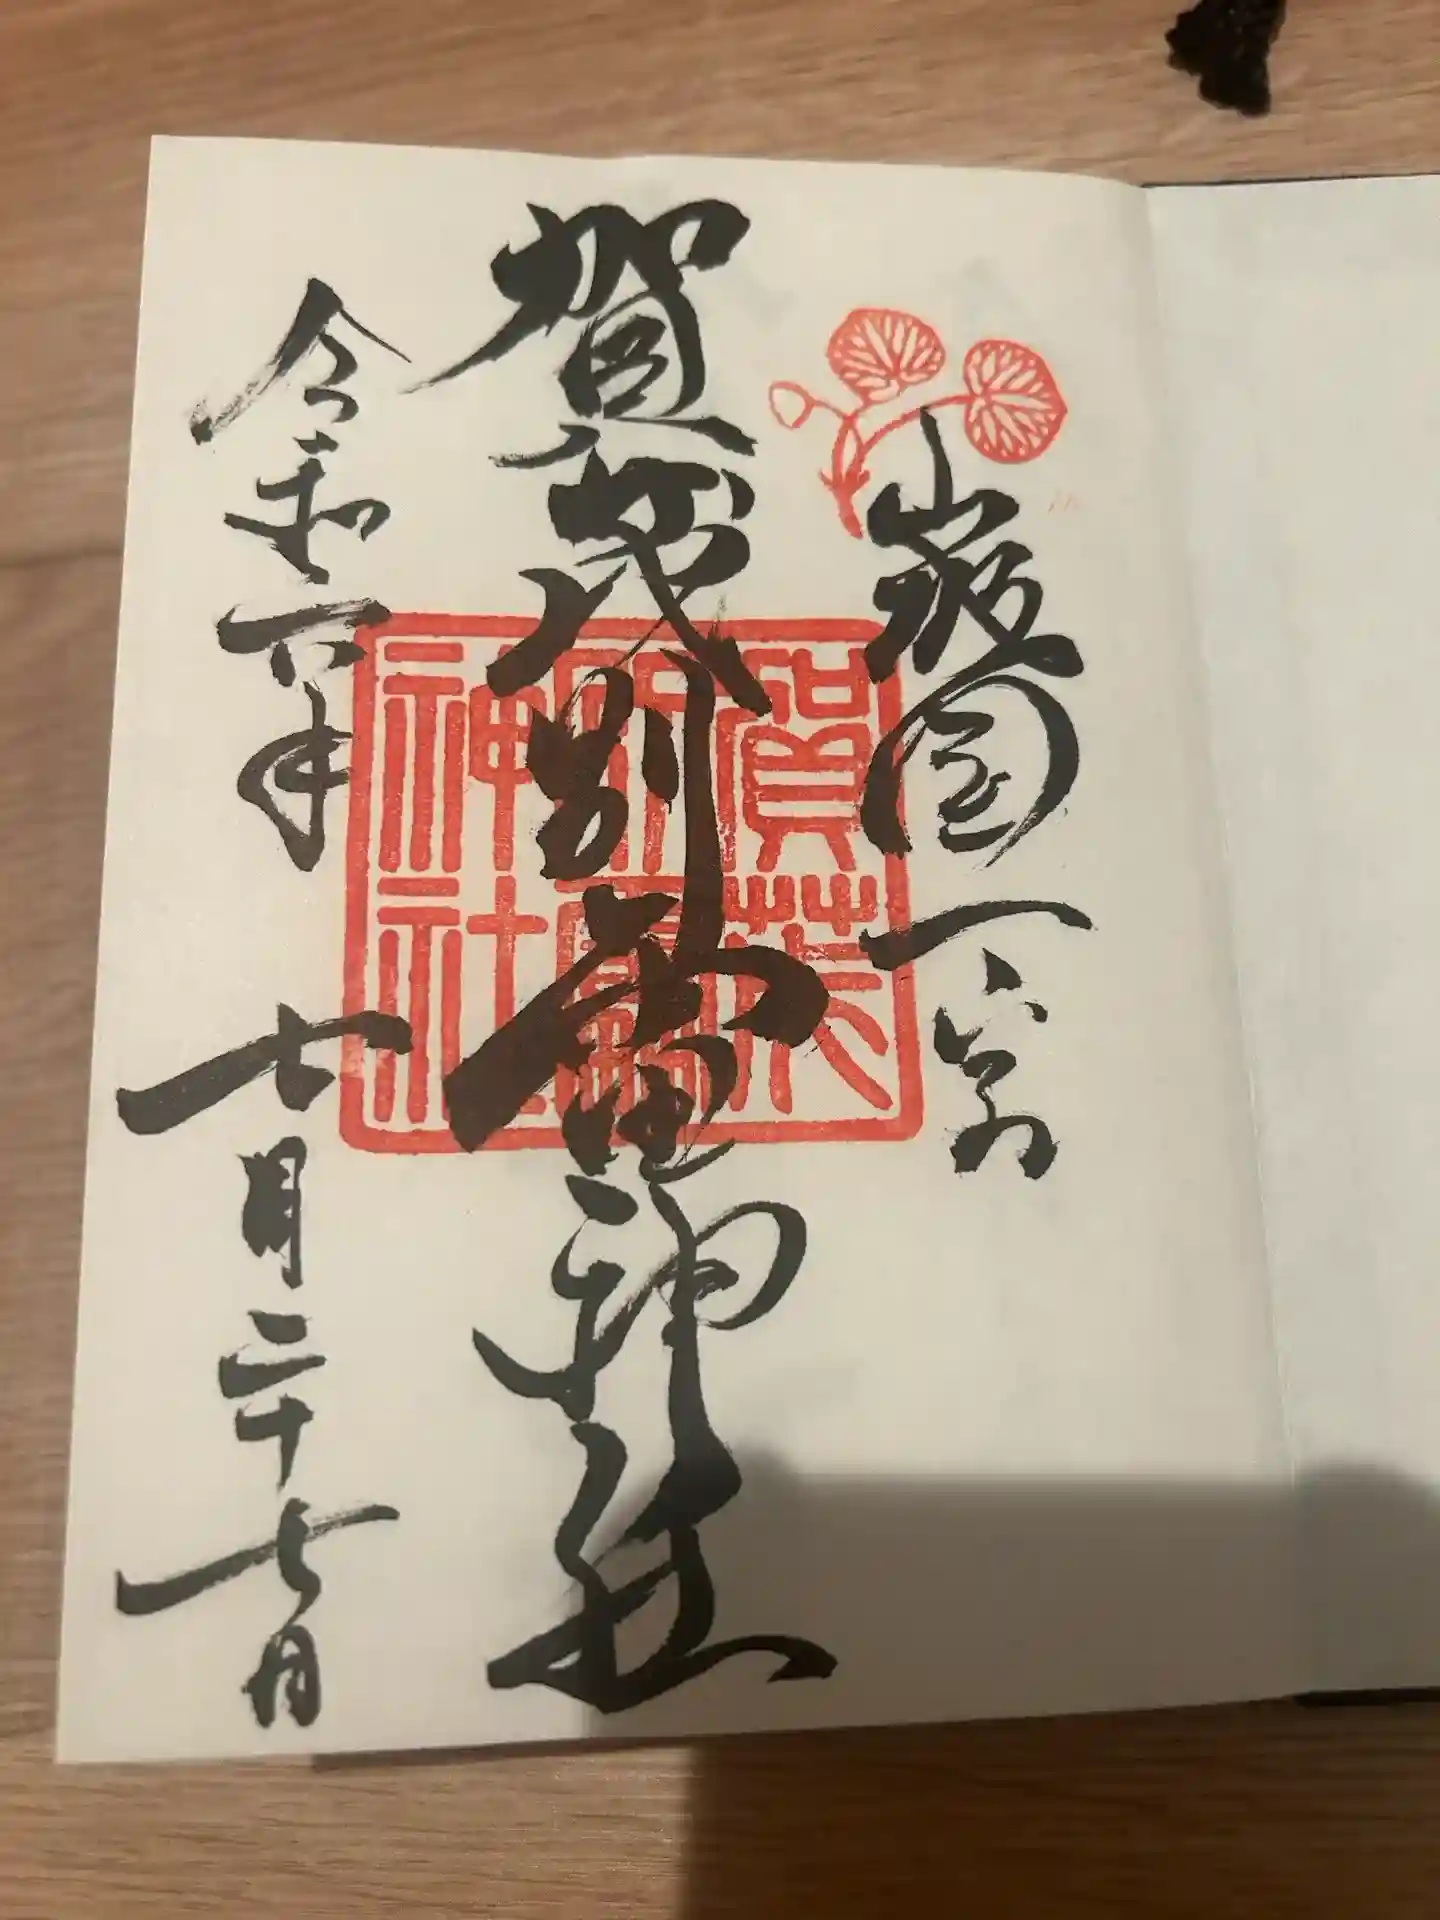 山城国一宮
賀茂別雷神社
令和六年 七月二十七日
賀茂別雷神社